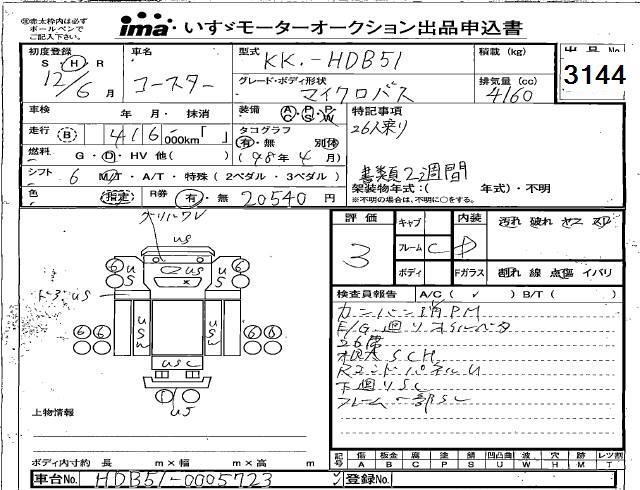 ※赤太枠内は必ず ボールペンで ご記入下さい。
ima いすゞモーターオークション出品申込書
初度登録 S・H・R 12/6月
車名 コースター
型式 KK-HDB51
積載 (kg)
出品No
3144
グレード・ボディ形状 マイクロバス
排気量 (cc) 4160
車検 年 月・抹消
装備 A/C・P/S・P/W
特記事項
26人乗り
走行 B 416,000km「 」
タコグラフ 有・無 別体
燃料 G・D・HV 他( )
(98年 4月)
シフト 6 M/T・A/T・特殊(2ペダル・3ペダル)
書類2週間
架装物年式:( 年式)・不明
※不明の場合は、不明に○をする。
色 指定
R券 有・無 20540円
評価 3
キャブ
フレーム C
ボディ
内装 D
汚れ 破れ ヤブ スレ
Fガラス
割れ 線 点傷 イバリ
US
6 6
US US US
ドアUS
US US
USW USW
6 6 6 6
USC
US
検査員報告 A/C(✓) B/T( )
カンバン消PM
E/G廻リオイルベタ
26席
根太SCH
RエンドパネルU
下廻りSC
フレーム一部SC
上物情報
ボディ内寸約 長 m×幅 m×高 m
記号 傷 板金 腐 塗 錆 凹凸曲 波 穴 跡 レツ割
A B C P S U W H M T
車台No. HDB51-0005723
登録No.